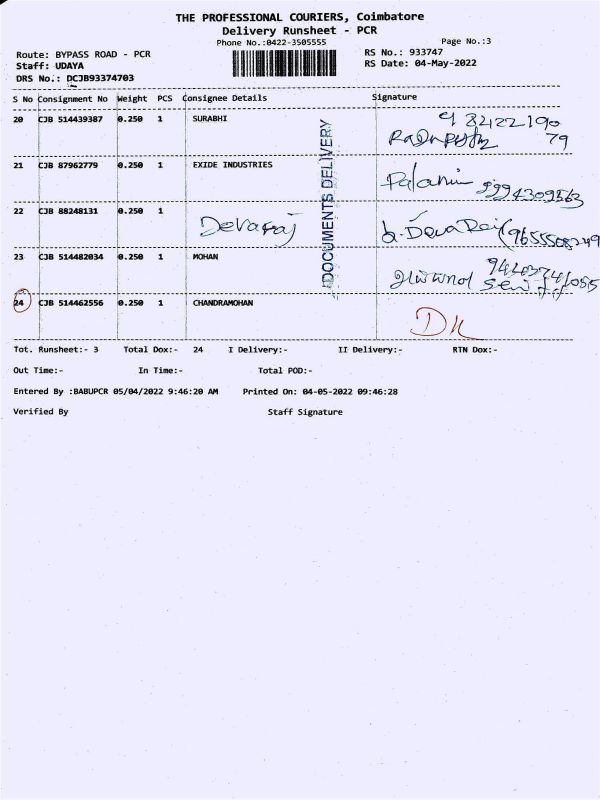 THE PROFESSIONAL COURIERS, Coimbatore
Delivery Runsheet - PCR
Phone No.:0422-3505555
Page No.:3
Route: BYPASS ROAD - PCR
RS No.: 933747
Staff: UDAYA
RS Date: 04-May-2022
DRS No.: DCJB93374703
S No Consignment No Weight PCS Consignee Details Signature
20 CJB 514439387 0.250 1 SURABHI
21 CJB 87962779 0.250 1 EXIDE INDUSTRIES
22 CJB 88248131 0.250 1 Devaraj
23 CJB 514482034 0.250 1 MOHAN
24 CJB 514462556 0.250 1 CHANDRAMOHAN
DOCUMENTS DELIVERY
Tot. Runsheet:- 3 Total Dox:- 24 I Delivery:- II Delivery:- RTN Dox:-
Out Time:- In Time:- Total POD:-
Entered By :BABUPCR 05/04/2022 9:46:20 AM Printed On: 04-05-2022 09:46:28
Verified By Staff Signature